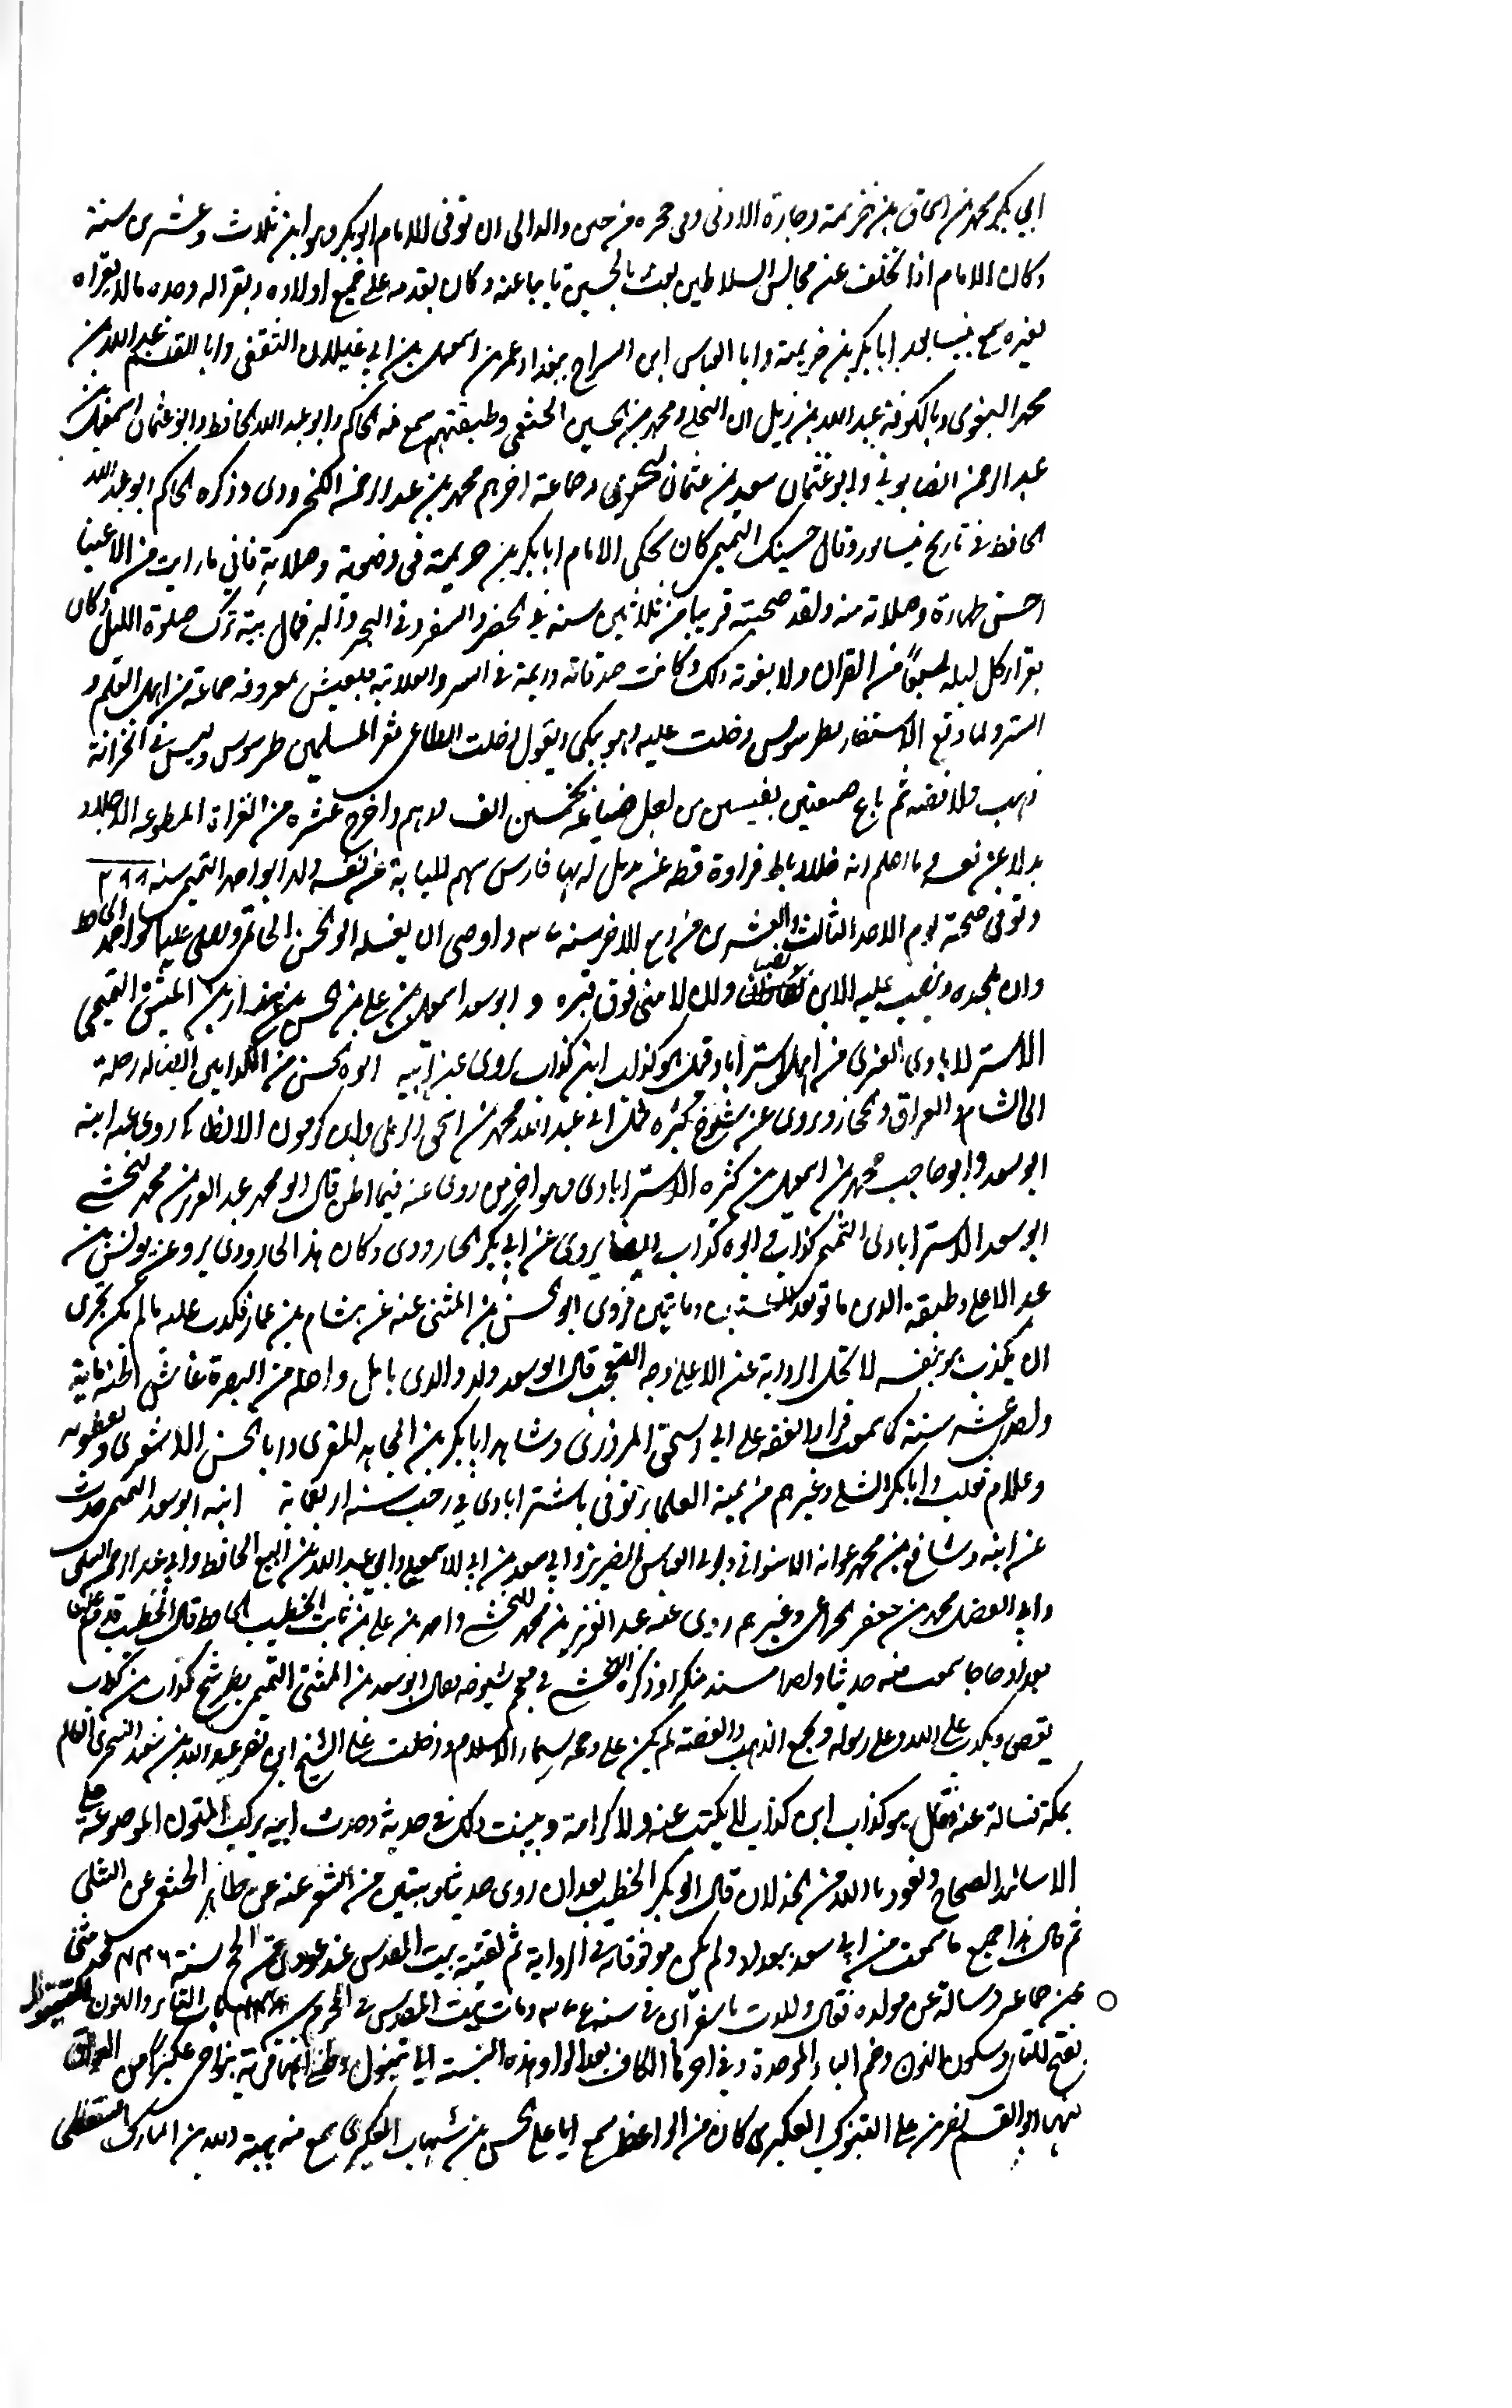 ابي بكر محمد بن اسحاق بن خزيمة وجارة الادنى وفى حجره من حين ولد الى ان توفى الامام ابو بكر وهو ابن ثلاث وعشرين سنة
وكان الامام اذا تخلف عن مجالس السلاطين بعث بالحسين نايبا عنه وكان يقدمه على جميع اولاده ويقرا له وحده مالا يقراه
لغيره سمع بنيسابور ابا بكر بن خزيمة وابا العباس ابن السراج ببغداد عمر بن اسمعيل بن ابي غيلان الثقفى وابا القسم عبد الله بن
محمد البغوى وبالكوفة عبد الله بن زيدان البجلى ومحمد بن الحسين الخثعمى وطبقتهم سمع منه الحاكم ابو عبد الله الحافظ وابو عثمان اسمعيل بن
عبد الرحمن الصابونى وابو عثمان سعيد بن عثمان وجماعة اخرهم محمد بن عبد الرحمن الكنجرودى وذكره الحاكم ابو عبد الله
الحافظ فى تاريخ نيسابور وقال حسينك التميمى كان يحكى الامام ابا بكر بن خزيمة فى وضوءه وصلاته فانى ما رايت من الاغنيا
احسن طهارة وصلاة منه ولقد صحبته قريبا من ثلاثين سنة فى الحضر والسفر وفى البحر والبر فما رايته ترك صلوة الليل وكان
يقرا كل ليلة سبعا من القران ولا يفوته ذلك وكانت صدقاته دايمة فى السر والعلانية فيعيش بمعروفه جماعة من اهل العلم و
الستر ولما وقع الاستنفار بطرسوس دخلت عليه وهو يبكى ويقول دخل الطاغى ثغر المسلمين طرسوس وليس فى الخزانة
ذهب ولا فضة ثم باع ضيعتين نفيستين من اجل ضياعه بخمسين الف درهم واخرج عشرة من الغزاة المطوعة الاجلاد
بدلا عن نفسه وما اعلم انه خلا رباط فراوة قط عن بديل له بها فارس شهم للنيابة عن نفسه ولد ابو احمد التميمى سنة ٢٨٨
وتوفى صبيحة يوم الاحد الثالث والعشرين من ربيع الاخر سنة ٣٧٥ واوصى ان يغسله ابو الحسن الحاتمى ويصلى عليه ابو احمد الحافظ
وان يلحده وينصب عليه اللبن نصب ولا يبنى فوق قبره و ابو سعد اسمعيل بن على بن الحسن بن بندار بن المثنى التميمى
الاسترابادى العنبرى من اهل استراباد قيل هو كذاب ابن كذاب يروى عن ابيه ابوه الحسن من الكذابين ايضا له رحلة
الى الشام والعراق والحجاز وروى عن شيوخ كثيرة مثل ابى عبد الله محمد بن اسحق الرملى وابن كرمون الانطاكى روى عنه ابنه
ابو سعد وابو حاجب محمد بن اسمعيل بن كثير الاسترابادى وهو اخر من روى عنه فيما اظن قال ابو محمد عبد العزيز بن محمد النخشبى
ابو سعد الاسترابادى التميمى كذاب وابوه كذاب ايضا يروى عن ابى بكر الجارودى وكان هذا الجارودى يروى عن يونس بن
عبد الاعلى وطبقة الذى ماتوا بعد الستين وماتين فروى ابو الحسن بن المثنى عنه عن هشام بن عمار فكذب عليه مالم يكن يجترى
ان يكذب هو بنفسه لا تحل الرواية عنه الا على وجه التعجب قال ابو سعد ولد والدى بامل واصله من البصرة عاش اظنه ثمانية
وتسعين سنة كما سمعت قرا الفقه على ابى اسحق المروزى وشاهد ابا بكر بن المجاهد المقرى وابا الحسن الاشعرى ونفطويه
وغلام ثعلب وابا بكر الشبلى وغيرهم من ايمة العلما وتوفى باستراباد فى رجب سنة اربعماية ابنه ابو سعد التميمى حدث
عن ابيه وشافع بن محمد بن ابى عوانة الاسفراينى وابى العباس الضرير وابى سعد بن ابى بكر الاسمعيلى وابى عبد الله بن البيع الحافظ وابى عبد الرحمن السلمى
وابى الفضل محمد بن جعفر الخزاعى وغيرهم روى عنه عبد العزيز بن محمد النخشبى واحمد بن على بن ثابت الخطيب الحافظ قال الخطيب قدم علينا
بغداد حاجا سمعت منه حديثا واحدا مسندا منكرا وذكره النخشبى فى معجم شيوخه فقال ابو سعد بن المثنى التميمى شيخ كذاب ابن كذاب
يقص ويكذب على الله وعلى رسوله ويجمع الذهب والفضة لم يكن على وجهه سيما الاسلام ودخلت على الشيخ ابى نصر عبيد الله بن سعيد السجزى العالم
بمكة فسالته عنه فقال هو كذاب ابن كذاب لا يكتب عنه ولا كرامة وتبينت ذلك فى حديثه وحديث ابيه يركب المتون الموضوعة على
الاسانيد الصحاح ونعوذ بالله من الخذلان قال ابو بكر الخطيب بعد ان روى حديثا وبيتين من الشعر عنه عن طاهر الخثعمى عن الشبلى
ثم قال هذا جميع ما سمعت من ابى سعد ببغداد ولم يكن موثوقا به فى الرواية ثم لقيته ببيت المقدس عند عودى من الحج سنة ٤٤٦ فحدثنى
عن جماعة وسالته عن مولده فقال ولدت باسفراين فى سنة ٣٧٥ ومات ببيت المقدس فى المحرم سنة ٤٤٨ باب التاء والنون
بفتح التاء وسكون النون وضم الباء الموحدة وفى اخرها الكاف بعد الواو هذه النسبة الى تنبوك وظنى انها قرية بنواحى عكبرا من العراق
منها ابو القسم نصر بن على التنبوكى العكبرى كان من الواعظ سمع ابا على الحسن بن شهاب العكبرى سمع منه هبة الله بن المبارك السقطى